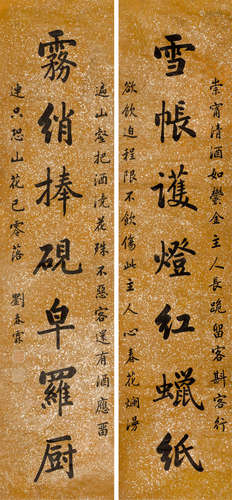 崇宵清酒如鬱金主人長跪留客斟客行
雪帳護燈紅蠟紙
欲飲迫程限不飲傷此主人心春花爛漫
遍山壑把酒澆花殊不惡客還有酒應留
霧綃捧硯皁羅厨
連只恐山花已零落 劉春霖